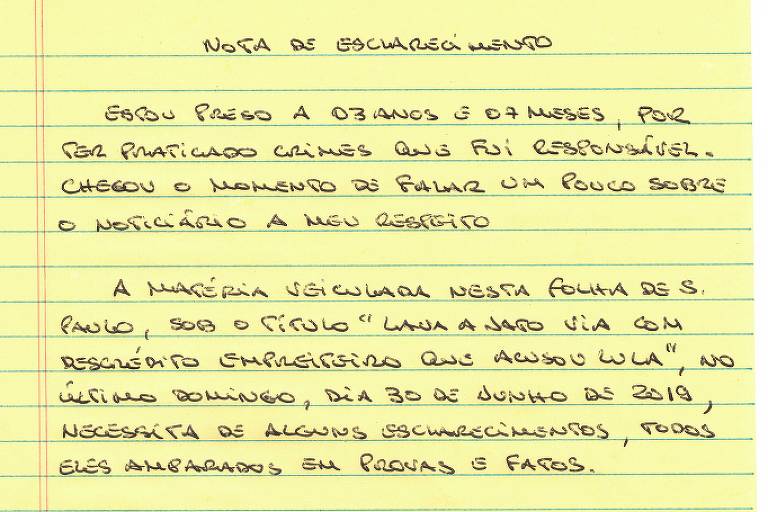 NOTA DE ESCLARECIMENTO
ESTOU PRESO A 03 ANOS E 07 MESES, POR
TER PRATICADO CRIMES QUE FUI RESPONSÁVEL.
CHEGOU O MOMENTO DE FALAR UM POUCO SOBRE
O NOTICIÁRIO A MEU RESPEITO
A MATÉRIA VEICULADA NESTA FOLHA DE S.
PAULO, SOB O TÍTULO "LAVA A JATO VIA COM
DESCRÉDITO EMPREITEIRO QUE ACUSOU LULA", NO
ÚLTIMO DOMINGO, DIA 30 DE JUNHO DE 2019,
NECESSITA DE ALGUNS ESCLARECIMENTOS, TODOS
ELES AMPARADOS EM PROVAS E FATOS.